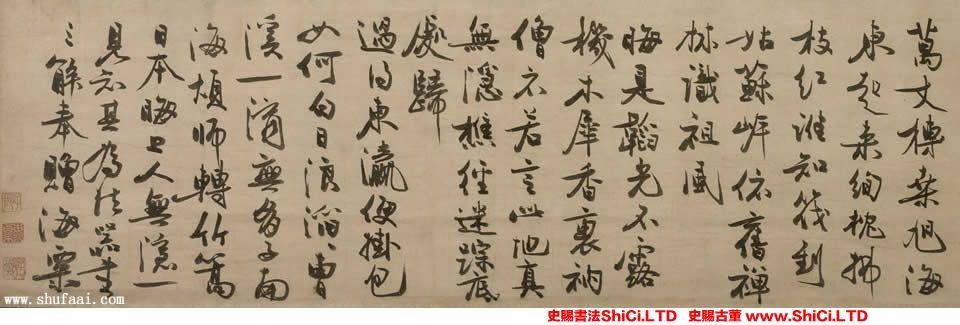 萬丈榑桒旭海
東起来絢桄拂
枝紅誰知筏到
姑蘇岸依舊禪
林識祖風
晦是韜光不露
機木犀香裏衲
僧衣若言此地真
無隱樵徑迷蹤底
處歸
過得東瀛便掛包
如何白日浪滔〻曹
溪一滴無多子南
海煩師轉竹篙
日本晦上人無隱一
見知其為法器書
三解奉贈海粟
www.shufaai.com
史賜書法ShiCi.LTD 史賜古董 www.ShiCi.LTD